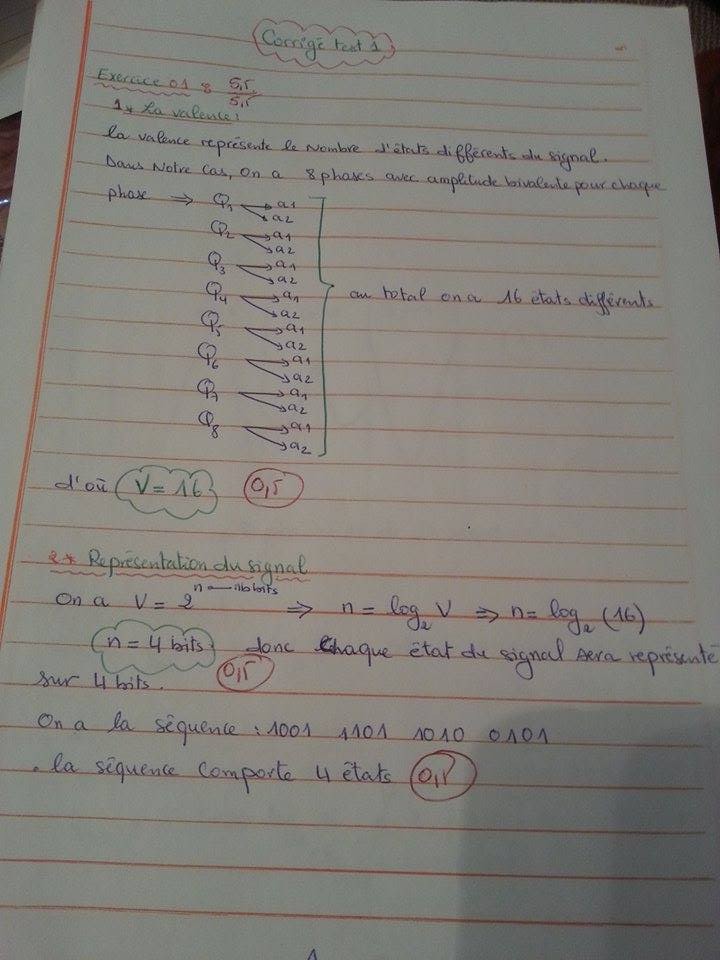 Corrigé test 1
Exercice 01 : 5,5/5,5
1* La valence :
la valence représente le Nombre d'états différents du signal.
Dans Notre Cas, On a 8 phases avec amplitude bivalente pour chaque
phase ⇒ φ1 a1
a2
φ2 a1
a2
φ3 a1
a2
φ4 a1
a2
φ5 a1
a2
φ6 a1
a2
φ7 a1
a2
φ8 a1
a2
au total on a 16 états différents
d'où V = 16 0,5
2* Représentation du signal
On a V = 2^n nb bits ⇒ n = log2 V ⇒ n = log2 (16)
n = 4 bits donc Chaque état du signal sera représenté
sur 4 bits. 0,5
On a la séquence : 1001 1101 1010 0101
. la séquence comporte 4 états 0,5
1